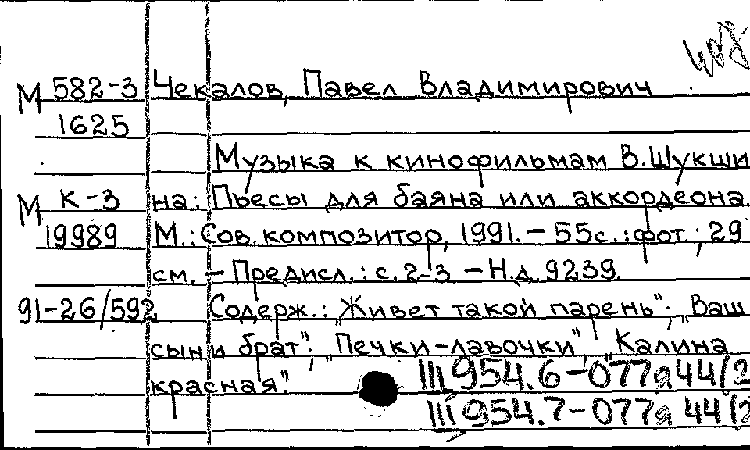 408
М 582-3 Чекалов, Павел Владимирович
1625
Музыка к кинофильмам В.Шукши
М К-3 на: Пьесы для баяна или аккордеона.
19989 М.: Сов. композитор, 1991. - 55с.: фот.; 29
см. - Предисл.: с. 2-3 - Н.д. 9239.
91-26/592 Содерж.: „Живет такой парень"; „Ваш
сын и брат"; „Печки-лавочки", „Калина
красная".
Ш 954.6-077я44/2
Ш 954.7-077я44/2